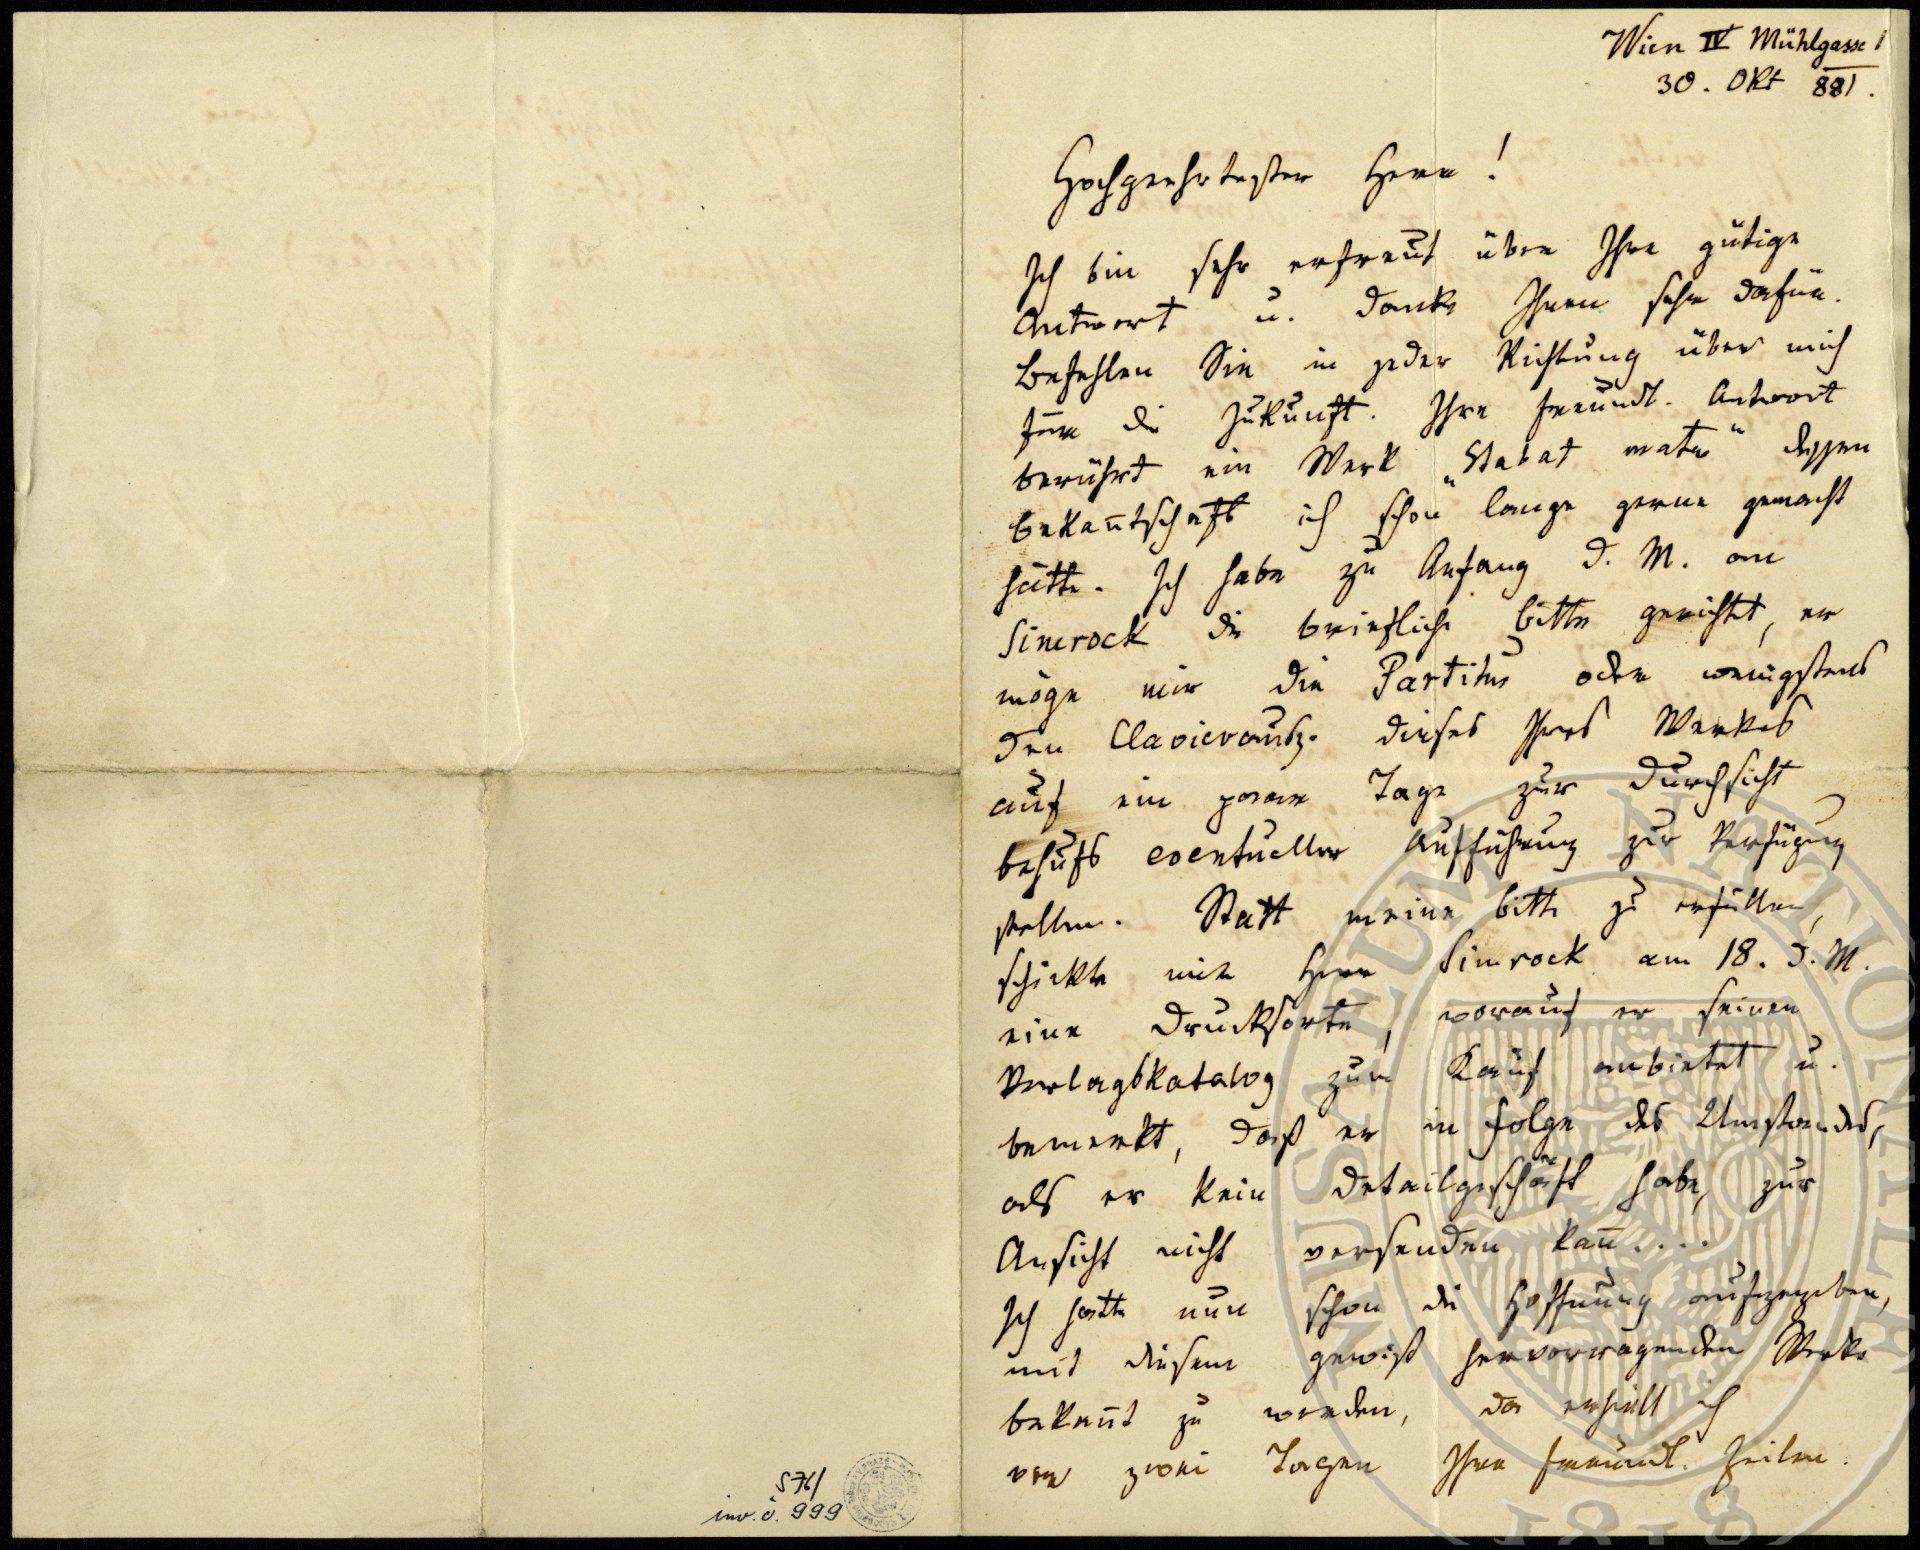 Wien IV Mühlgasse 1
30. Okt 881.
Hochgeehrtester Herr!
Ich bin sehr erfreut über Ihre gütige
Antwort u. danke Ihnen sehr dafür.
Befehlen Sie in jeder Richtung über mich
für die Zukunft. Ihre freundl. Antwort
berührt ein Werk „Stabat mater“ dessen
Bekan̄tschaft ich schon lange gerne gemacht
hätte. Ich habe zu Anfang d. M. an
Simrock die briefliche Bitte gerichtet, er
möge mir die Partitur oder wenigstens
den Clavierausz. dieses Ihres Werkes
auf ein paar Tage zur Durchsicht
behufs eventueller Aufführung zur Verfügung
stellen. Statt meine Bitte zu erfüllen,
schickte mir Herr Simrock am 18. d. M.
eine Drucksorte, worauf er seinen
Verlagskatalog zum Kauf anbietet u.
bemerkt, daß er in Folge des Umstandes,
als er kein Detailgeschäft habe, zur
Ansicht nicht versenden kan̄....
Ich hatte nun schon die Hoffnung aufgegeben,
mit diesem gewiß hervorragenden Werke
bekan̄t zu werden, da erhielt ich
vor zwei Tagen Ihre freundl. Zeilen.
S 76/
inv. č. 999
MUSAEUM NATIONALE
1818